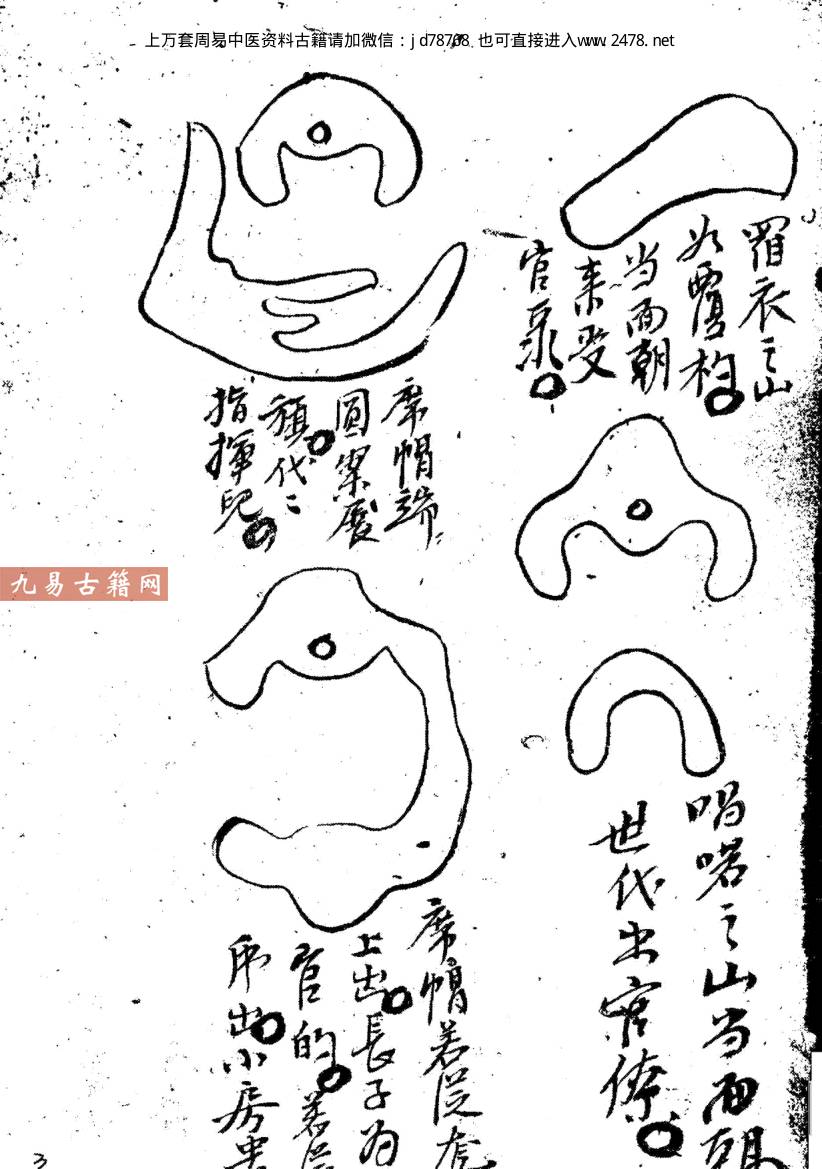 上万套周易中医资料古籍请加微信：jd78708 也可直接进入www.2478.net
衣之山
如覆杓
当面朝
来受
官
席帽端
圆案展
旗代二
指挥
九易古籍网
唱喏之山当面朝
世代出官僚
席帽若從
上出長子为
官的若從
出小房
3